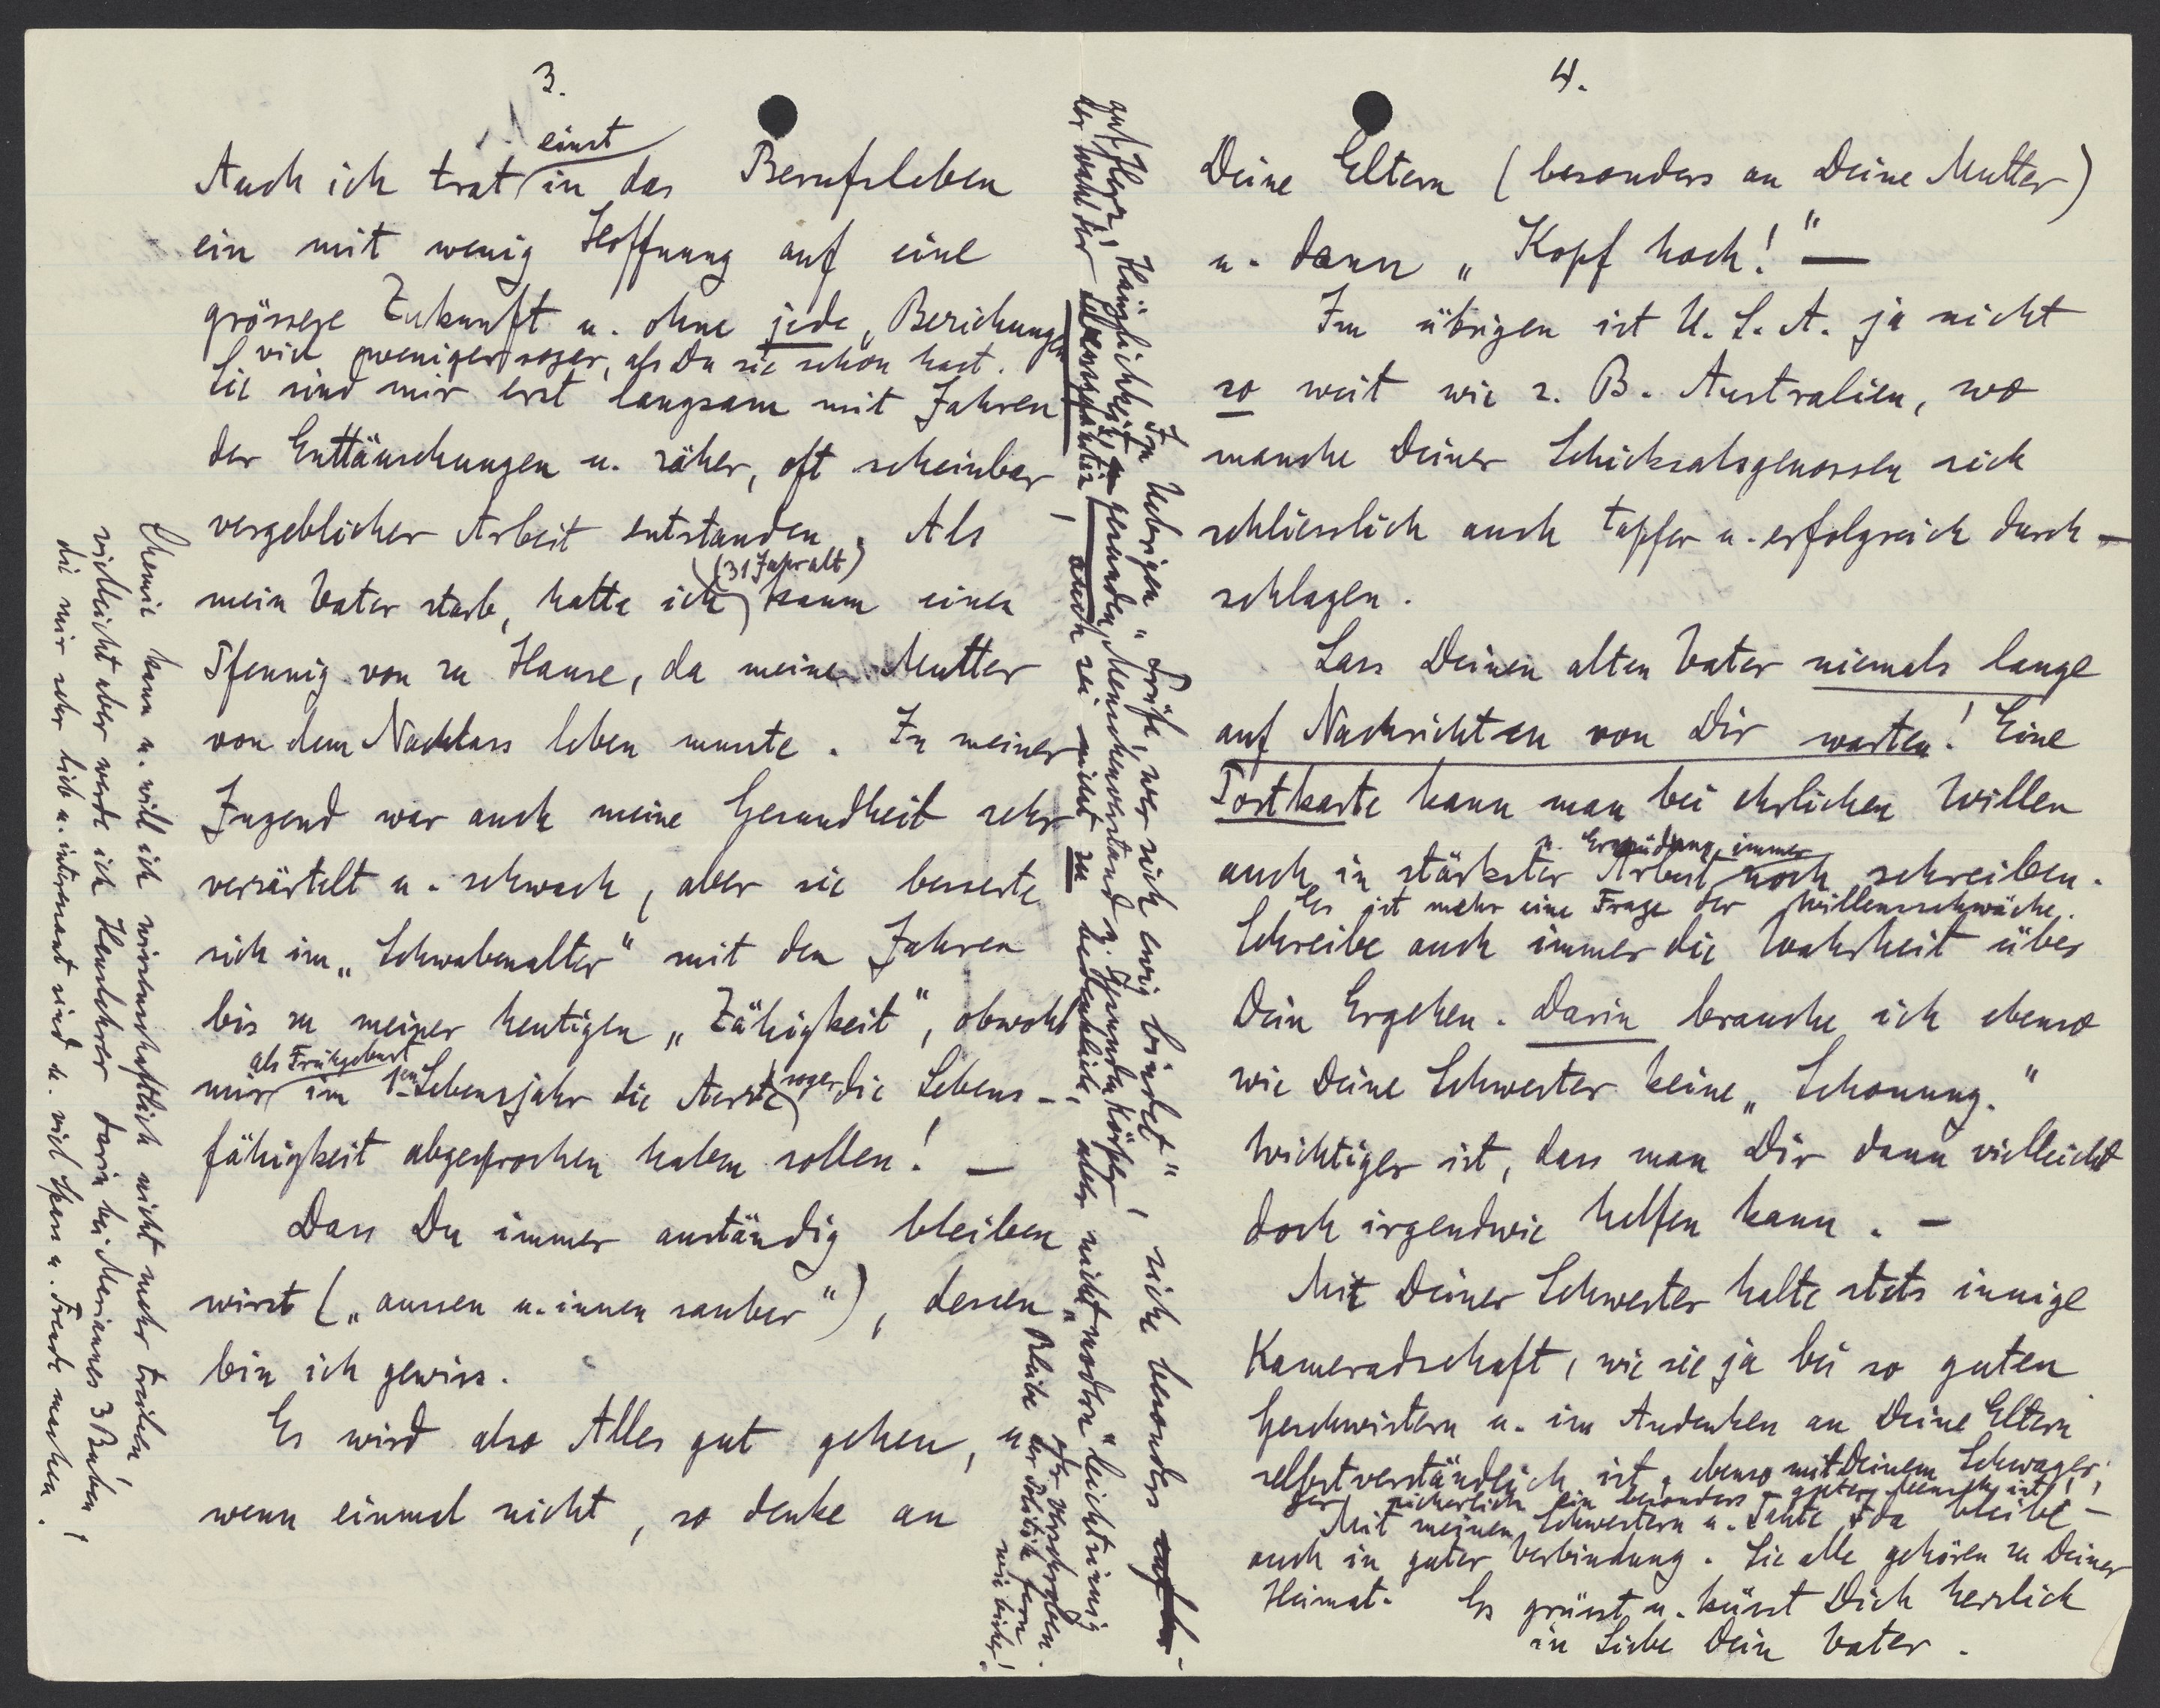 3.
Auch ich trat einst in das Berufsleben
ein mit wenig Hoffnung auf eine
grössere Zukunft u. ohne jede „Beziehungen"
viel weniger sogar, als Du sie schon hast.
Sie sind mir erst langsam mit Jahren
der Enttäuschungen u. zäher, oft scheinbar
vergeblicher Arbeit entstanden. Als
mein Vater starb, hatte ich (31 Jahr alt) kaum einen
Pfennig von zu Hause, da meine Mutter
von dem Nachlass leben musste. In meiner
Jugend war auch meine Gesundheit sehr
verzärtelt u. schwach, aber sie besserte
sich im „Schwabenalter" mit den Jahren
bis zu meiner heutigen „Zähigkeit", obwohl
mir als Frühgeburt im 1ten Lebensjahr die Aerzte sogar die Lebens-
fähigkeit abgesprochen haben sollen! —
Dass Du immer anständig bleiben
wirst („aussen u. innen sauber"), dessen
bin ich gewiss.
Es wird also Alles gut gehen, u.
wenn einmal nicht, so denke an
Chemie kann u. will ich wissenschaftlich nicht mehr treiben!
vielleicht aber werde ich Hauslehrer darin bei Mariannes 3 Buben!
die mir sehr lieb u. interessant sind u. viel Spass u. Freude machen.
Im Uebrigen „drüfe, wer sich ewig bindet", siehe besonders
auf Herz! Häuslichkeit, gesunden Menschenverstand u. gesunden Körper!
der Wahl der Lebensgefährtin, auch sei nicht zu bedenklich, aber nicht „modern" leichtsinnig
oder verschroben.
Bleibe der Politik fern
wie bisher!
4.
Deine Eltern (besonders an Deine Mutter)
u. dann „Kopf hoch!" —
Im übrigen ist U. S. A. ja nicht
so weit wie z. B. Australien, wo
manche Deiner Schicksalsgenossen sich
schliesslich auch tapfer u. erfolgreich durch-
schlagen.
Lass Deinen alten Vater niemals lange
auf Nachrichten von Dir warten! Eine
Postkarte kann man bei ehrlichen Willen
auch in stärkster Arbeit u. Ermüdung immer noch schreiben.
Es ist mehr eine Frage der Willensschwäche.
Schreibe auch immer die Wahrheit über
Dein Ergehen. Darin brauche ich ebenso
wie Deine Schwester keine „Schonung."
Wichtiger ist, dass man Dir dann vielleicht
doch irgendwie helfen kann. —
Mit Deiner Schwester halte stets innige
Kameradschaft, wie sie ja bei so guten
Geschwistern u. im Andenken an Deine Eltern
selbstverständlich ist, ebenso mit Deinem Schwager,
der sicherlich ein besonders guter Mensch ist!
Mit meinen Schwestern u. Tante Ida bleibe —
auch in guter Verbindung. Sie alle gehören zu Deiner
Heimat. Es grüsst u. küsst Dich herzlich
in Liebe Dein Vater.